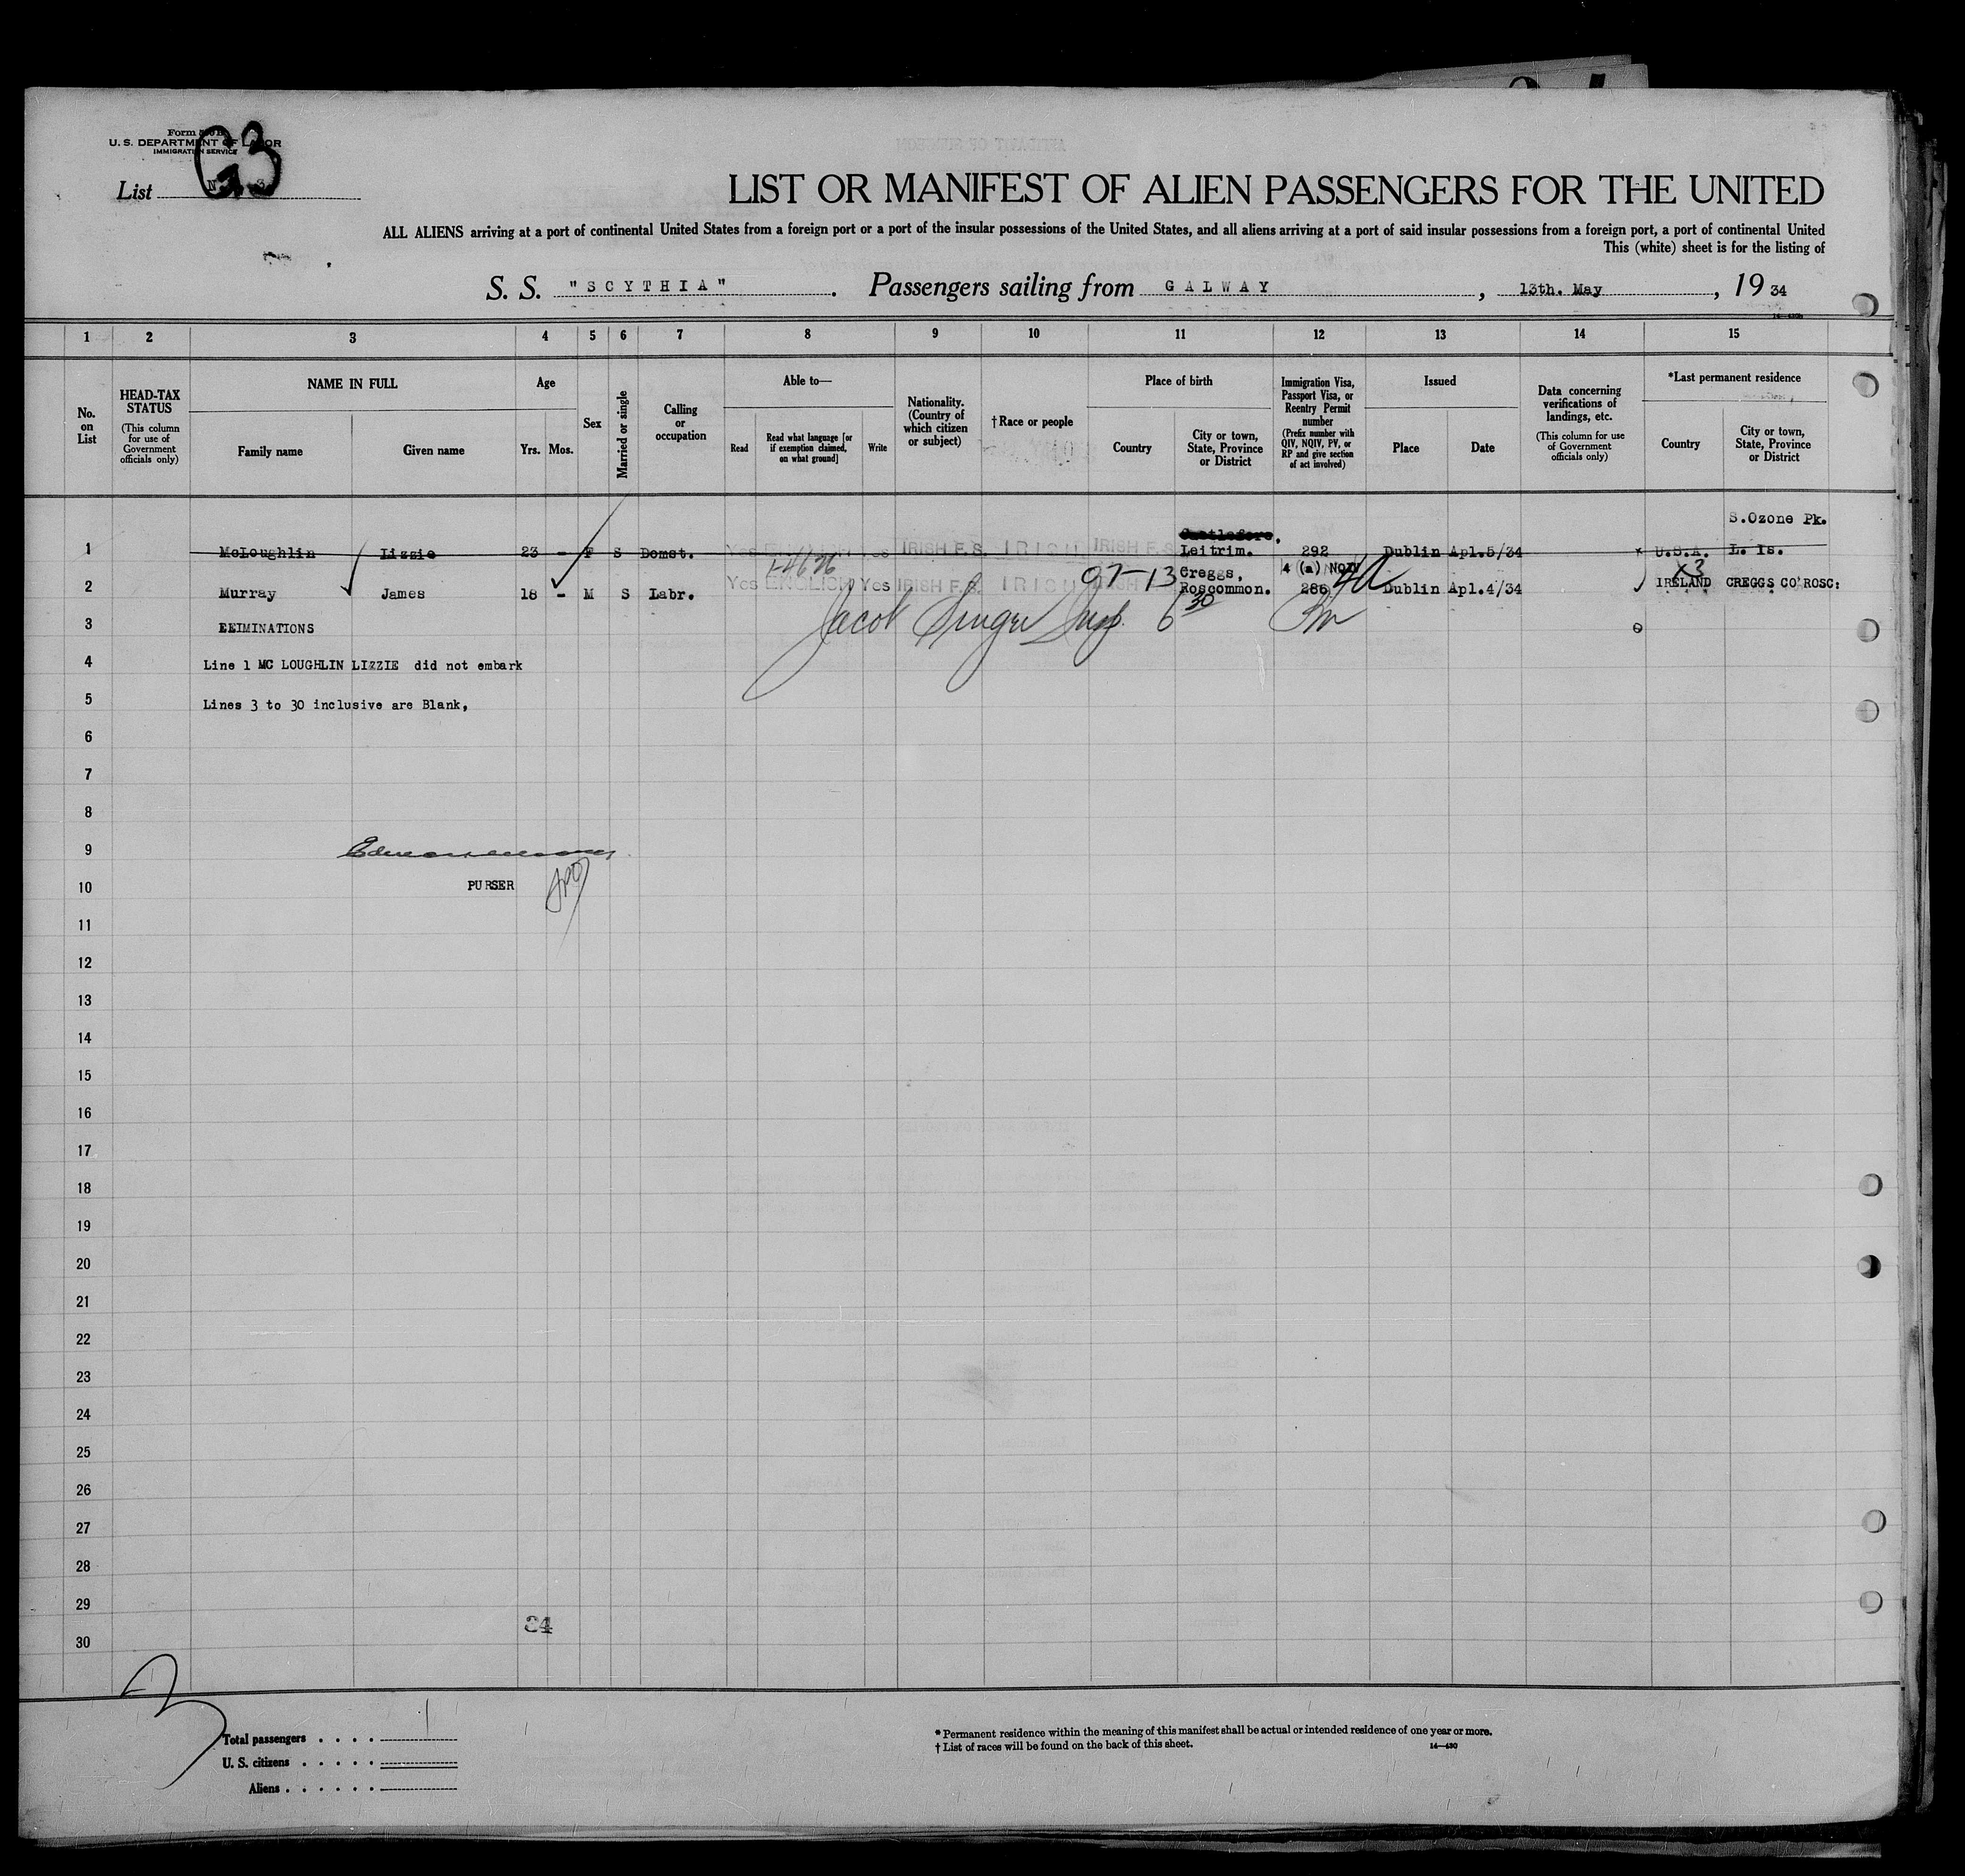 Form
U. S. DEPARTMENT OF LABOR
IMMIGRATION SERVICE
G3
List
LIST OR MANIFEST OF ALIEN PASSENGERS FOR THE UNITED
ALL ALIENS arriving at a port of continental United States from a foreign port or a port of the insular possessions of the United States, and all aliens arriving at a port of said insular possessions from a foreign port, a port of continental United
This (white) sheet is for the listing of
S. S. "SCYTHIA". Passengers sailing from GALWAY, 13th. May, 19 34
1 2 3 4 5 6 7 8 9 10 11 12 13 14 15
No. on List
HEAD-TAX STATUS
(This column for use of Government officials only)
NAME IN FULL
Family name Given name
Age
Yrs. Mos.
Sex
Married or single
Calling or occupation
Able to—
Read
Read what language [or if exemption claimed, on what ground]
Write
Nationality. (Country of which citizen or subject)
†Race or people
Place of birth
Country
City or town, State, Province or District
Immigration Visa, Passport Visa, or Reentry Permit number
(Prefix number with QIV, NQIV, PV, or RP and give section of act involved)
Issued
Place Date
Data concerning verifications of landings, etc.
(This column for use of Government officials only)
*Last permanent residence
Country
City or town, State, Province or District
S.Ozone Pk.
1 McLoughlin Lizzie 23 - F S Domst. Yes ENGLISH Yes IRISH F.S. IRISH IRISH F.S. Leitrim. 292 Dublin Apl.5/34 U.S.A. L. Is.
97-13 Creggs, 4 (a) NQIV 4a X3
2 Murray James 18 - M S Labr. Yes ENGLISH Yes IRISH F.S. IRISH Roscommon. 286 Dublin Apl.4/34 IRELAND CREGGS CO'ROSC:
3 EEIMINATIONS Jacob Singer Insp. 6 30 Pm
4 Line 1 MC LOUGHLIN LIZZIE did not embark
5 Lines 3 to 30 inclusive are Blank,
6
7
8
9
10 PURSER
11
12
13
14
15
16
17
18
19
20
21
22
23
24
25
26
27
28
29
34
30
3
Total passengers . . . . 1
U. S. citizens . . . . .
Aliens . . . . . .
* Permanent residence within the meaning of this manifest shall be actual or intended residence of one year or more.
† List of races will be found on the back of this sheet. 14—430